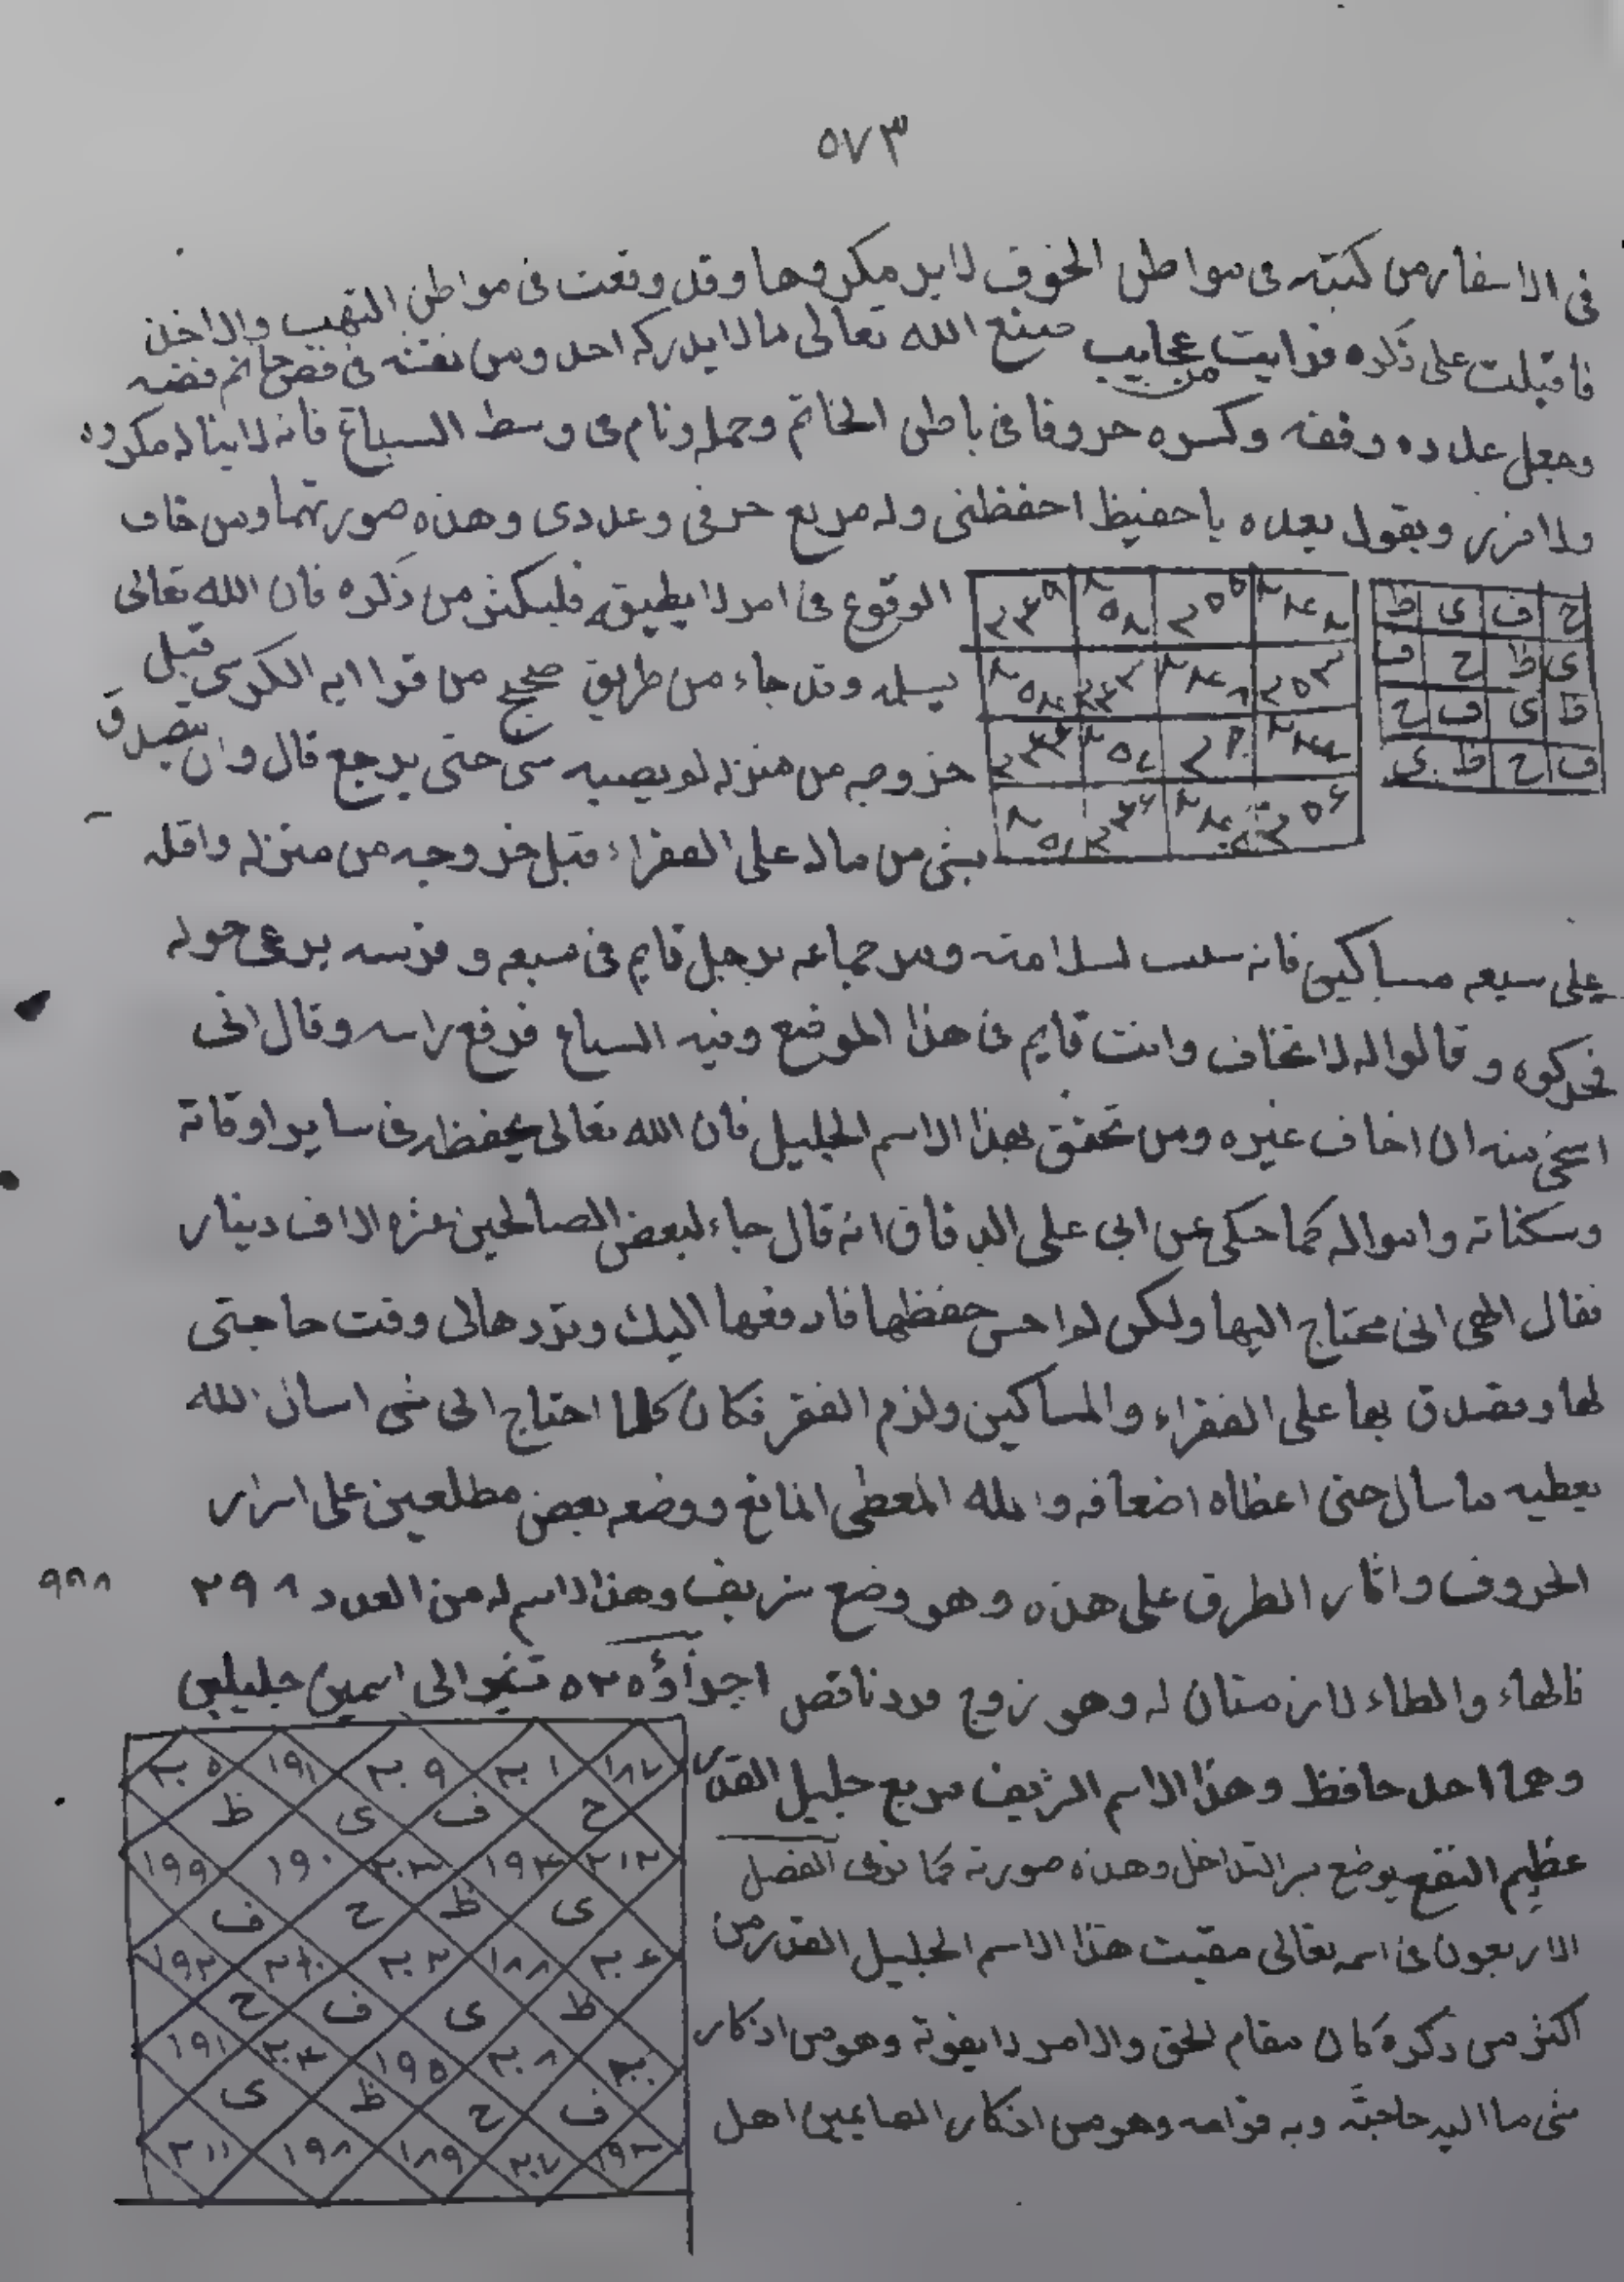 ٥٧٣
في الاسفار من كتبه في مواطن الخوف لا يرى مكروها وقد وقعت في مواطن التهب والاخذ
فاقبلت على ذكره فرايت من عجايب صنع الله تعالى ما لا يدركه احد ومن نقشه في فص خاتم فضه
وجعل عدده وفقه وكسره حروفا في باطن الخاتم وحمله ونام في وسط السباع فانه لا يناله مكروه
ولا ضرر ويقول بعده يا حفيظ احفظني وله مربع حرفي وعددي وهذه صورتهما ومن خاف
الوقوع في امر لا يطيقه فليكثر من ذكره فان الله تعالى
ح ف ى ظ
ى ظ ح ف
ظ ى ف ح
ف ح ظ ى
يسلمه وقد جاء من طريق صحيح من قرا ايه الكرسي قبل
خروجه من منزله لم يصبه شى حتى يرجع قال وان تصدق
بشى من ماله على الفقراء قبل خروجه من منزله واقله
على سبعه مساكين فانه سبب لسلامته ومر جماعه برجل قايم في سبعه وفرسه يرعى حوله
فحركوه وقالوا له لا تخاف وانت قايم في هذا الموضع وفيه السباع فرفع راسه وقال انى
استحى منه ان اخاف غيره ومن تحقق بهذا الاسم الجليل فان الله تعالى يحفظه في ساير اوقاته
وسكناته وامواله كما حكى عن ابى على الدقاق انه قال جاء لبعض الصالحين عشره الاف دينار
فقال الهى انى محتاج اليها ولكن لم احسن حفظها فادفعها اليك وتردها الى وقت حاجتى
لها وتصدق بها على الفقراء والمساكين ولزم الفقر فكان كلما احتاج الى شى اسال الله
يعطيه ما سال حتى اعطاه اضعافه والله المعطى المانع ووضعه بعض مطلعين على اسرار
الحروف واثار الطرق على هذه وهو وضع شريف وهذا الاسم له من العدد ٩٩٨ ٢٩٨
فالهاء والطاء لازمتان له وهو زوج فرد ناقص اجزاؤه ٥٢٥ تنمو الى اسمين جليلين
وهما احد حافظ وهذا الاسم الشريف مربع جليل القدر
عظيم النفع يوضع بسر التداخل وهذه صورته كما ترى الفصل
الاربعون فى اسمه تعالى مقيت هذا الاسم الجليل القدر من
اكثر من ذكره كان مقام الحق والامر لا يفوته وهو من اذكار
من ما اليه حاجته وبه قوامه وهو من اذكار الصايمين اهل
٢٠٥ ١٩١ ٢٠٩ ٢٠١ ١٨٧
ظ ى ف ح
١٩٩ ١٩٠ ٢٠٣ ١٩٤ ٢١٢
ف ح ظ ى
١٩٢ ٢١٠ ٢٠٢ ١٨٨ ٢٠٦
ح ف ى ظ
١٩١ ٢٠٤ ١٩٥ ٢٠٨ ٢٠٠
ى ظ ح ف
٢١١ ١٩٨ ١٨٩ ٢٠٧ ١٩٣